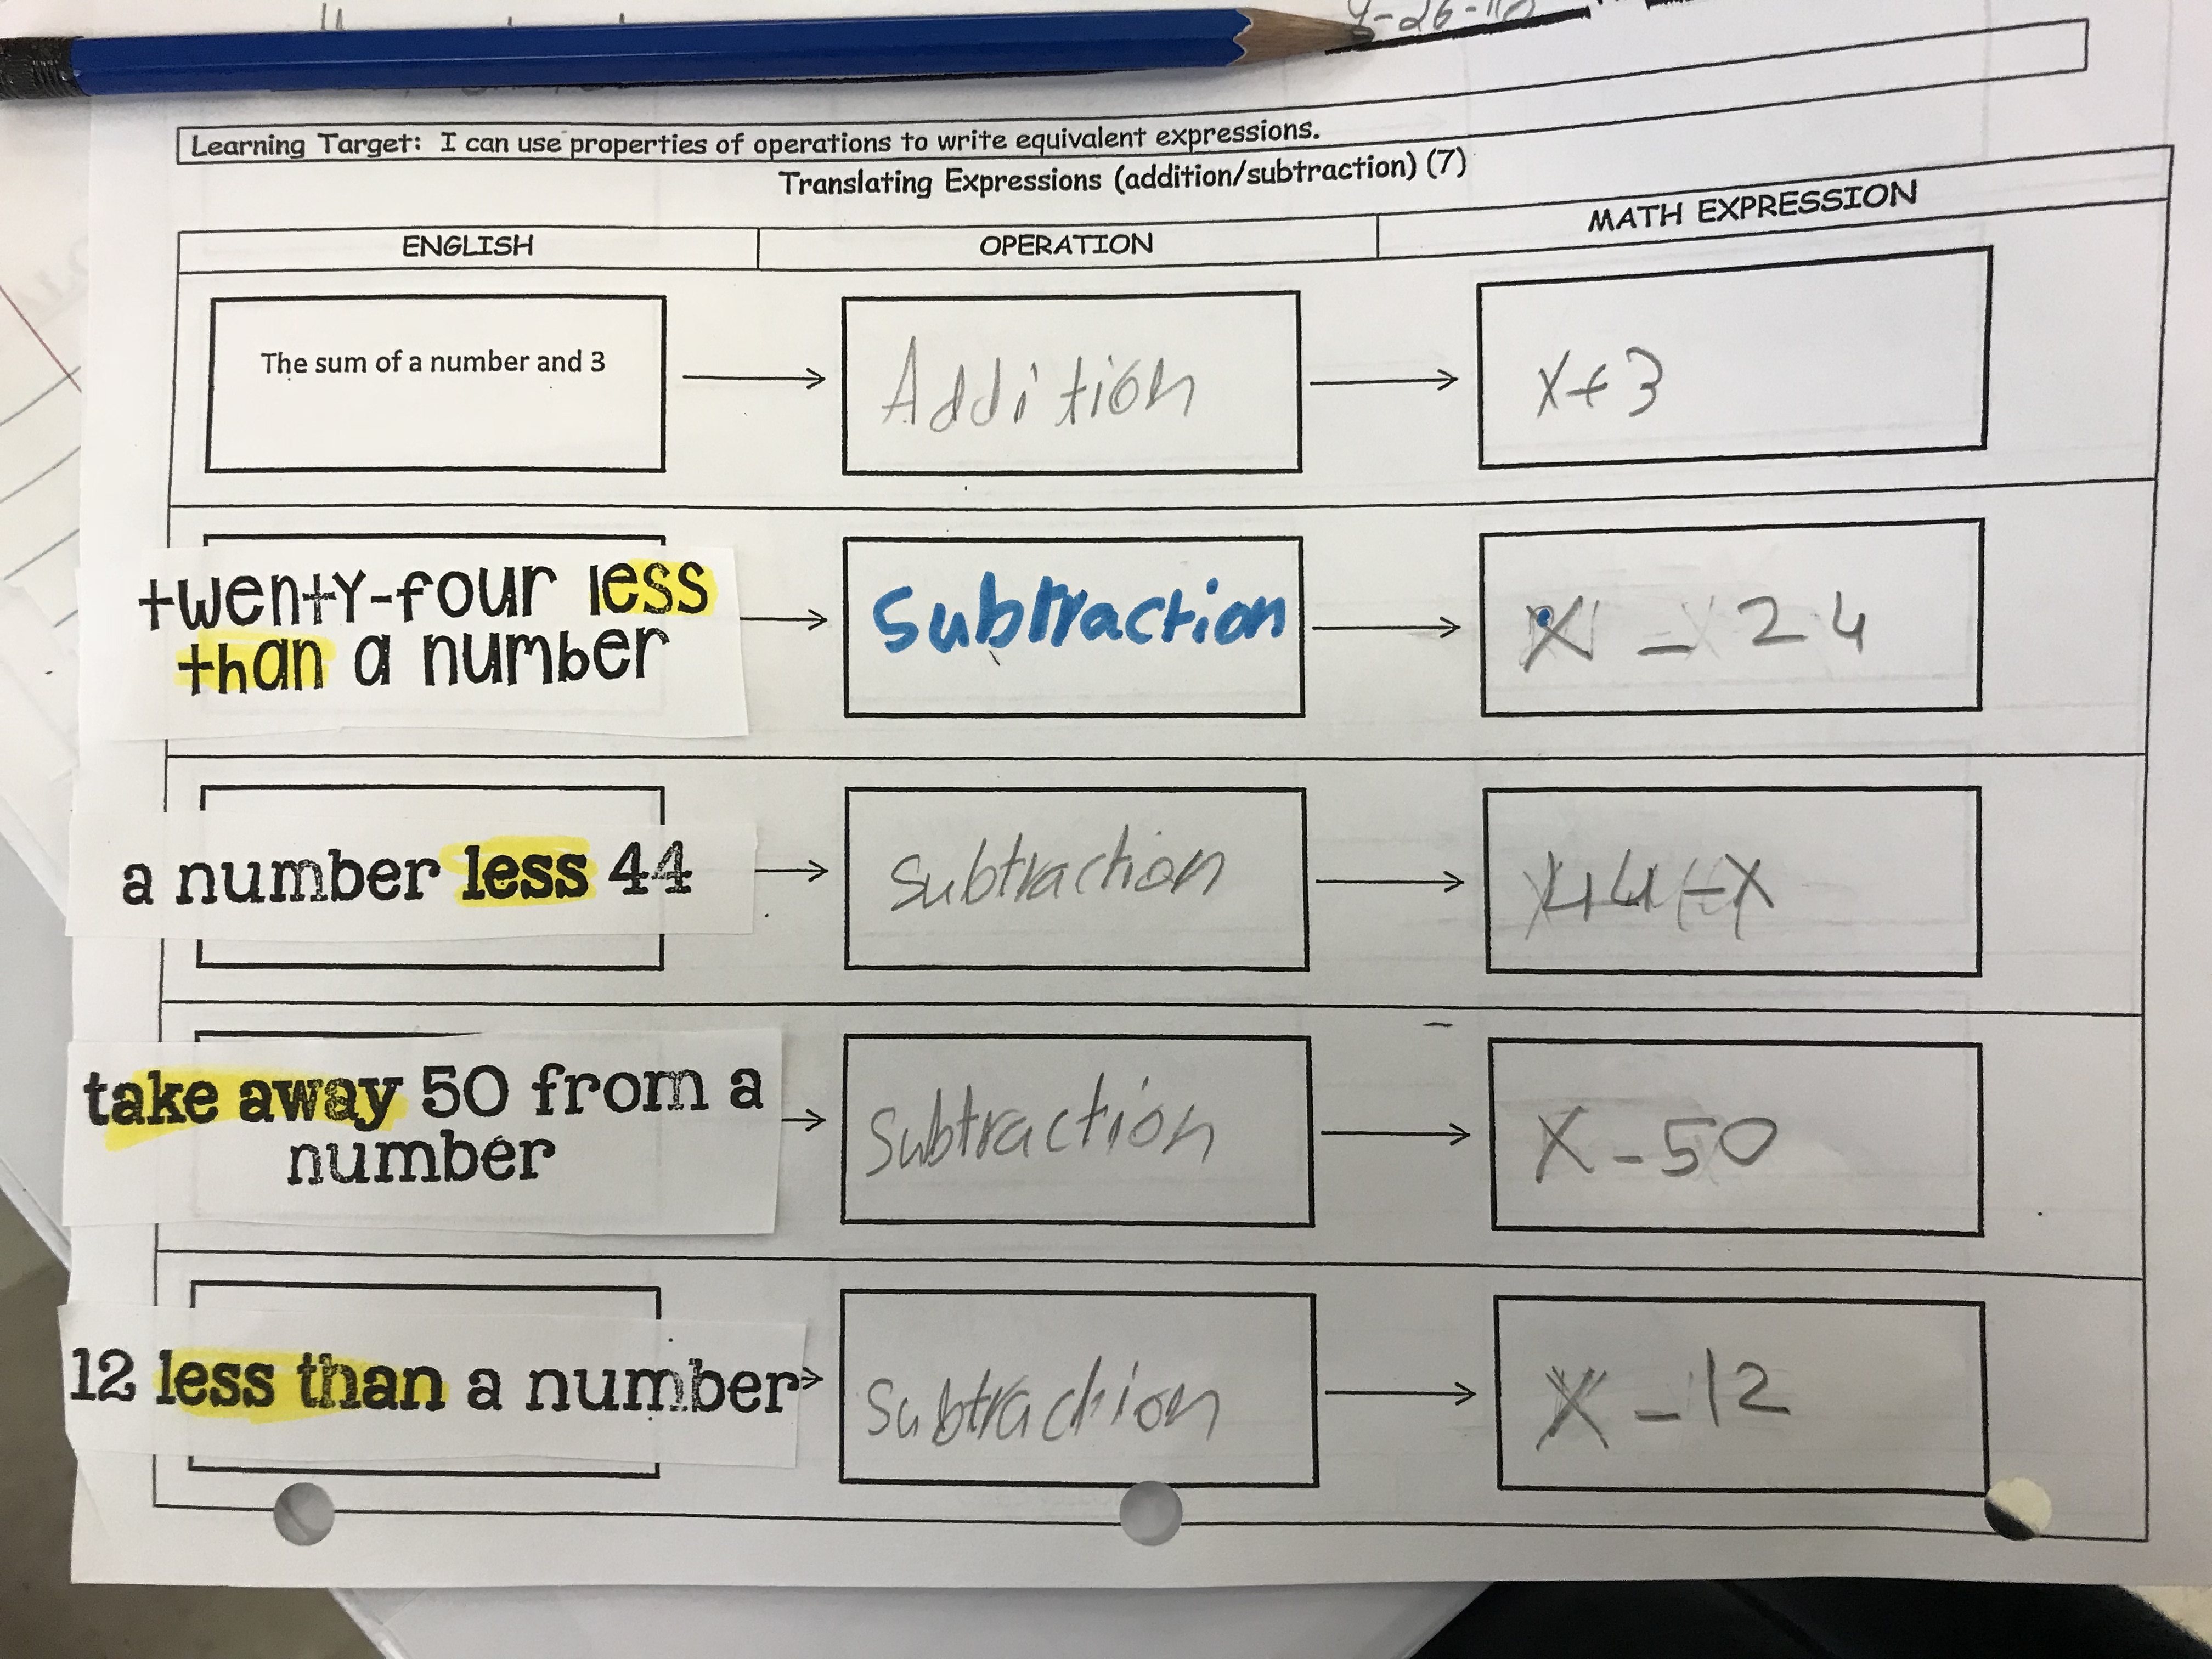 Learning Target: I can use properties of operations to write equivalent expressions.
Translating Expressions (addition/subtraction) (7)
ENGLISH OPERATION MATH EXPRESSION
The sum of a number and 3
Addition
x+3
twenty-four less
than a number
Subtraction
x - 24
a number less 44
Subtraction
44-x
take away 50 from a
number
Subtraction
x-50
12 less than a number
Subtraction
x-12